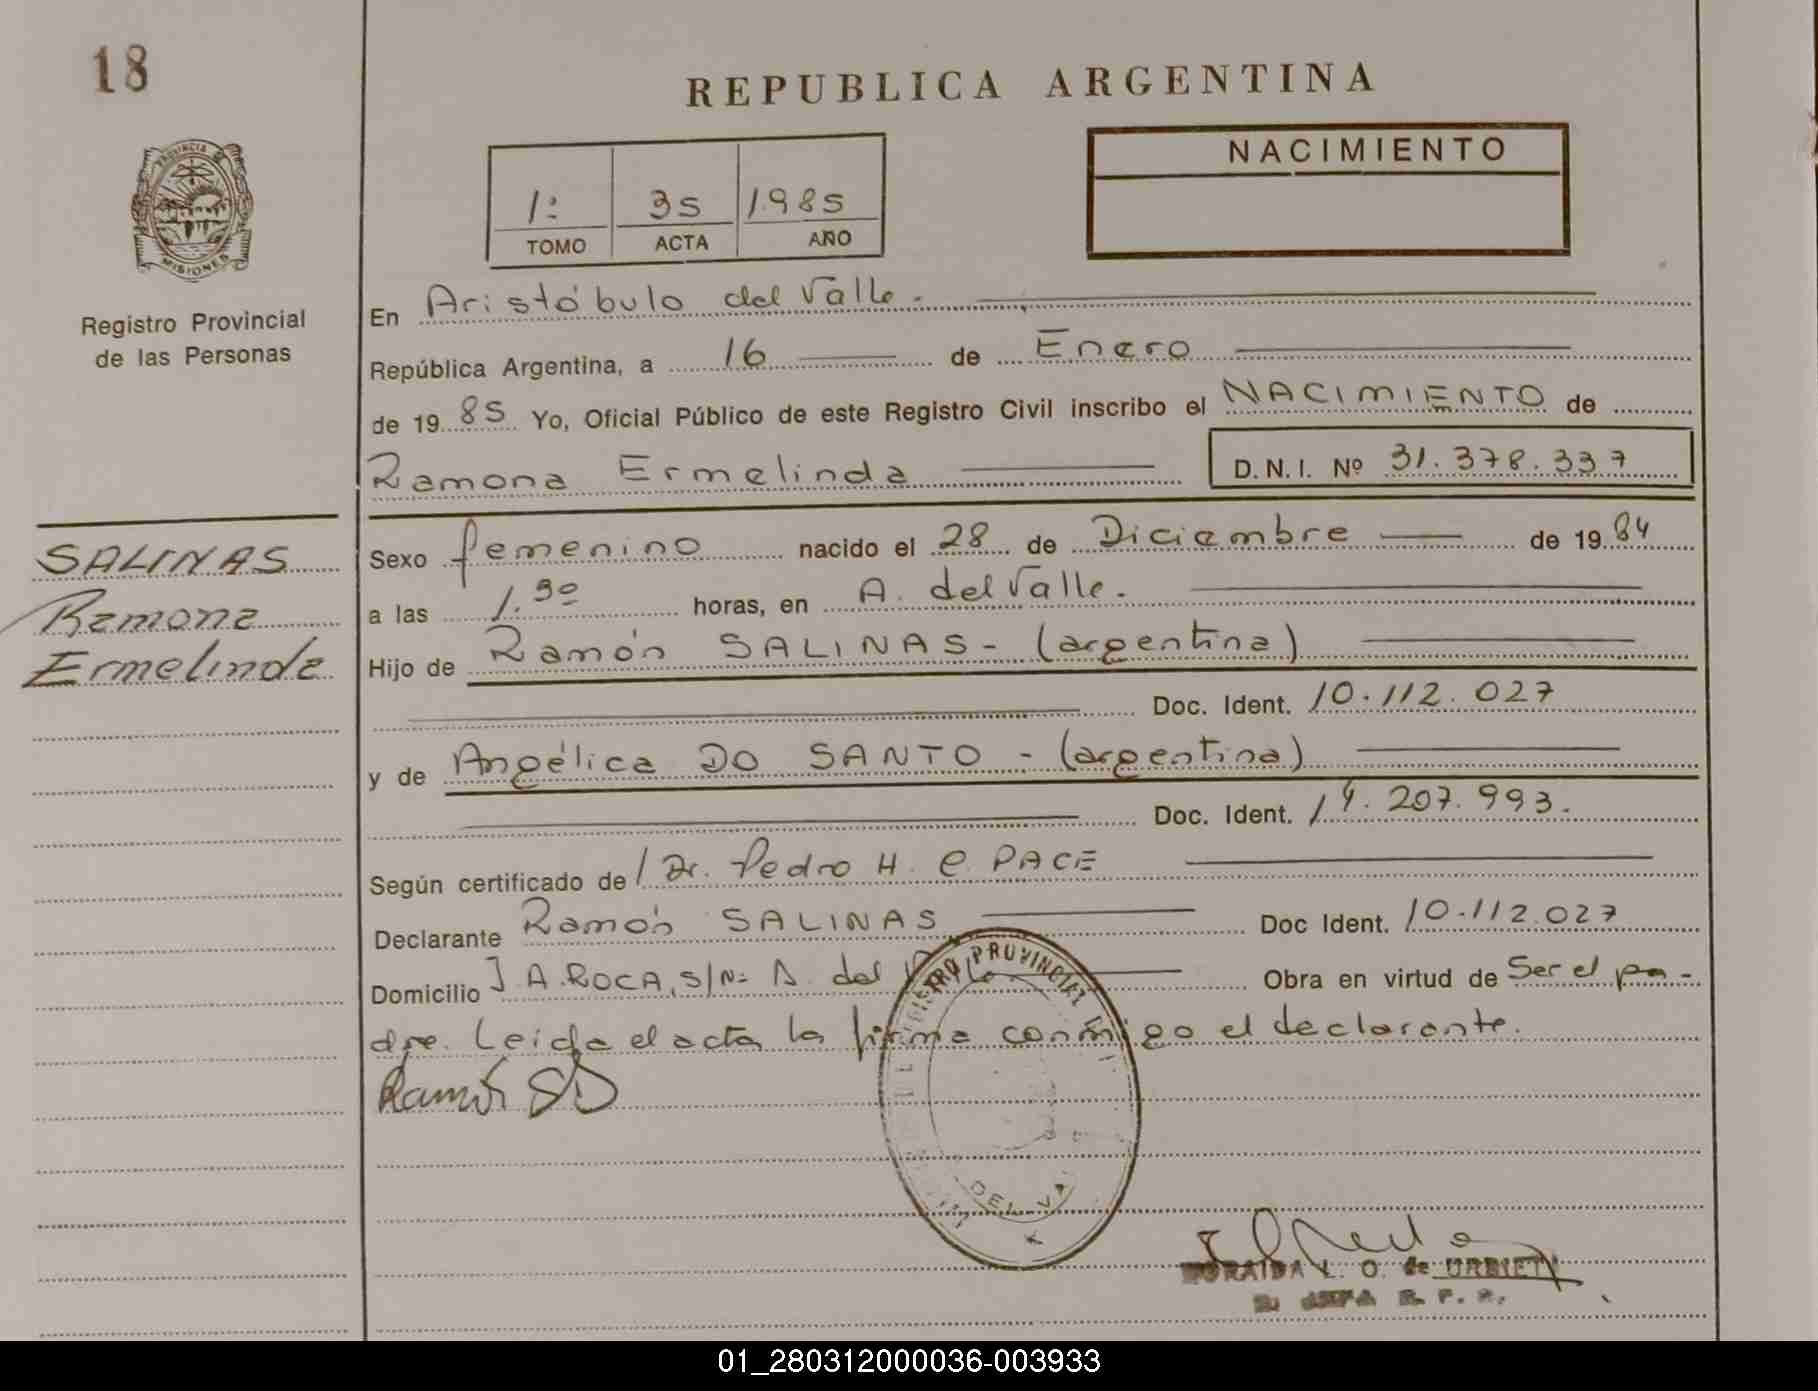 18
REPUBLICA ARGENTINA
PROVINCIA DE
MISIONES
Registro Provincial
de las Personas
1: 35 1.985
TOMO ACTA AÑO
NACIMIENTO
En Aristóbulo del Valle.
República Argentina, a 16 de Enero
de 19 85 Yo, Oficial Público de este Registro Civil inscribo el NACIMIENTO de
Ramona Ermelinda D.N.I. Nº 31.378.337
SALINAS
Ramona
Ermelinda
Sexo femenino nacido el 28 de Diciembre de 19 84
a las 1.30 horas, en A. del Valle.
Hijo de Ramón SALINAS - (argentina)
Doc. Ident. 10.112.027
y de Angélica DO SANTO - (argentina)
Doc. Ident. 14.207.993.
Según certificado de Dr. Pedro H. C. PACE
Declarante Ramón SALINAS Doc Ident. 10.112.027
Domicilio J. A. ROCA, S/N: A. del Obra en virtud de Ser el pa-
dre. Leída el acta la firma conmigo el declarante.
Ramón
REGISTRO PROVINCIAL
DEL VA
L. O. de URBIETA
JEFA R. P. P.
01_280312000036-003933